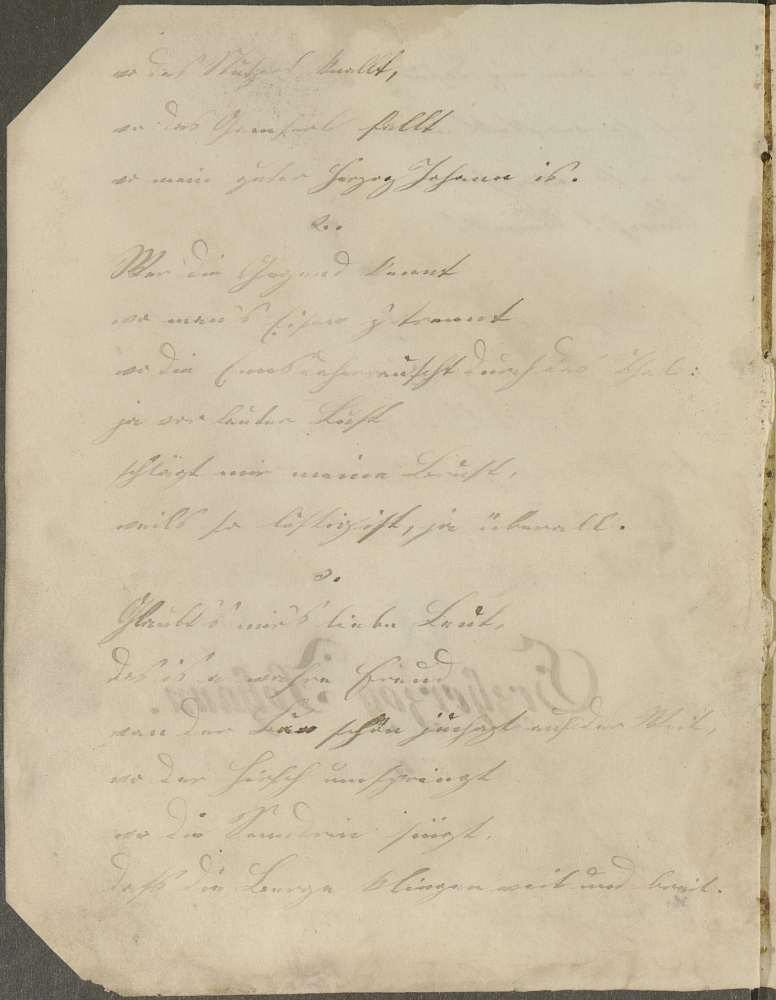 wo das Stutzerl knallt,
wo das Gamserl fallt
wo mein guter Herzog Johann is.
2.
Wer die Gegend kennt
wo man's Eisen z'trennt
wo die Enns daherrauscht durch das Thal:
ja vor lauter Lust
schlägt mir meine Brust,
weils so lustig ist, ja überall.
3.
Glaubt's mir's liebe Leut,
das is a wahre Freud
wan der Bua schön juchazt auf der Weit,
wo der Hirsch umspringt
wo die Sendrin singt,
daß die Berge klingen weit und breit.
Erzherzog Johann.